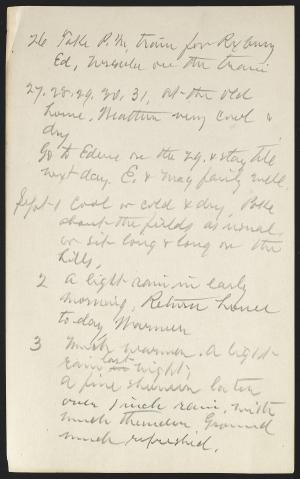 26 Take P.M. train for Roxbury
Ed, Ursula on the train
27, 28, 29, 30, 31, at the old
home. Weather very cool &
dry
Go to Edens on the 29. & stay till
next day. E. & Mag fairly well.
Sept 1 Cool or cold & dry, Poke
about the fields as usual
or sit long & long on the
hills.
2 A light rain in early
morning, Return home
to-day Warmer
3 Much warmer. A light
rain last night;
a fine shower later
over 1 inch rain, with
much thunder. Ground
much refreshed.